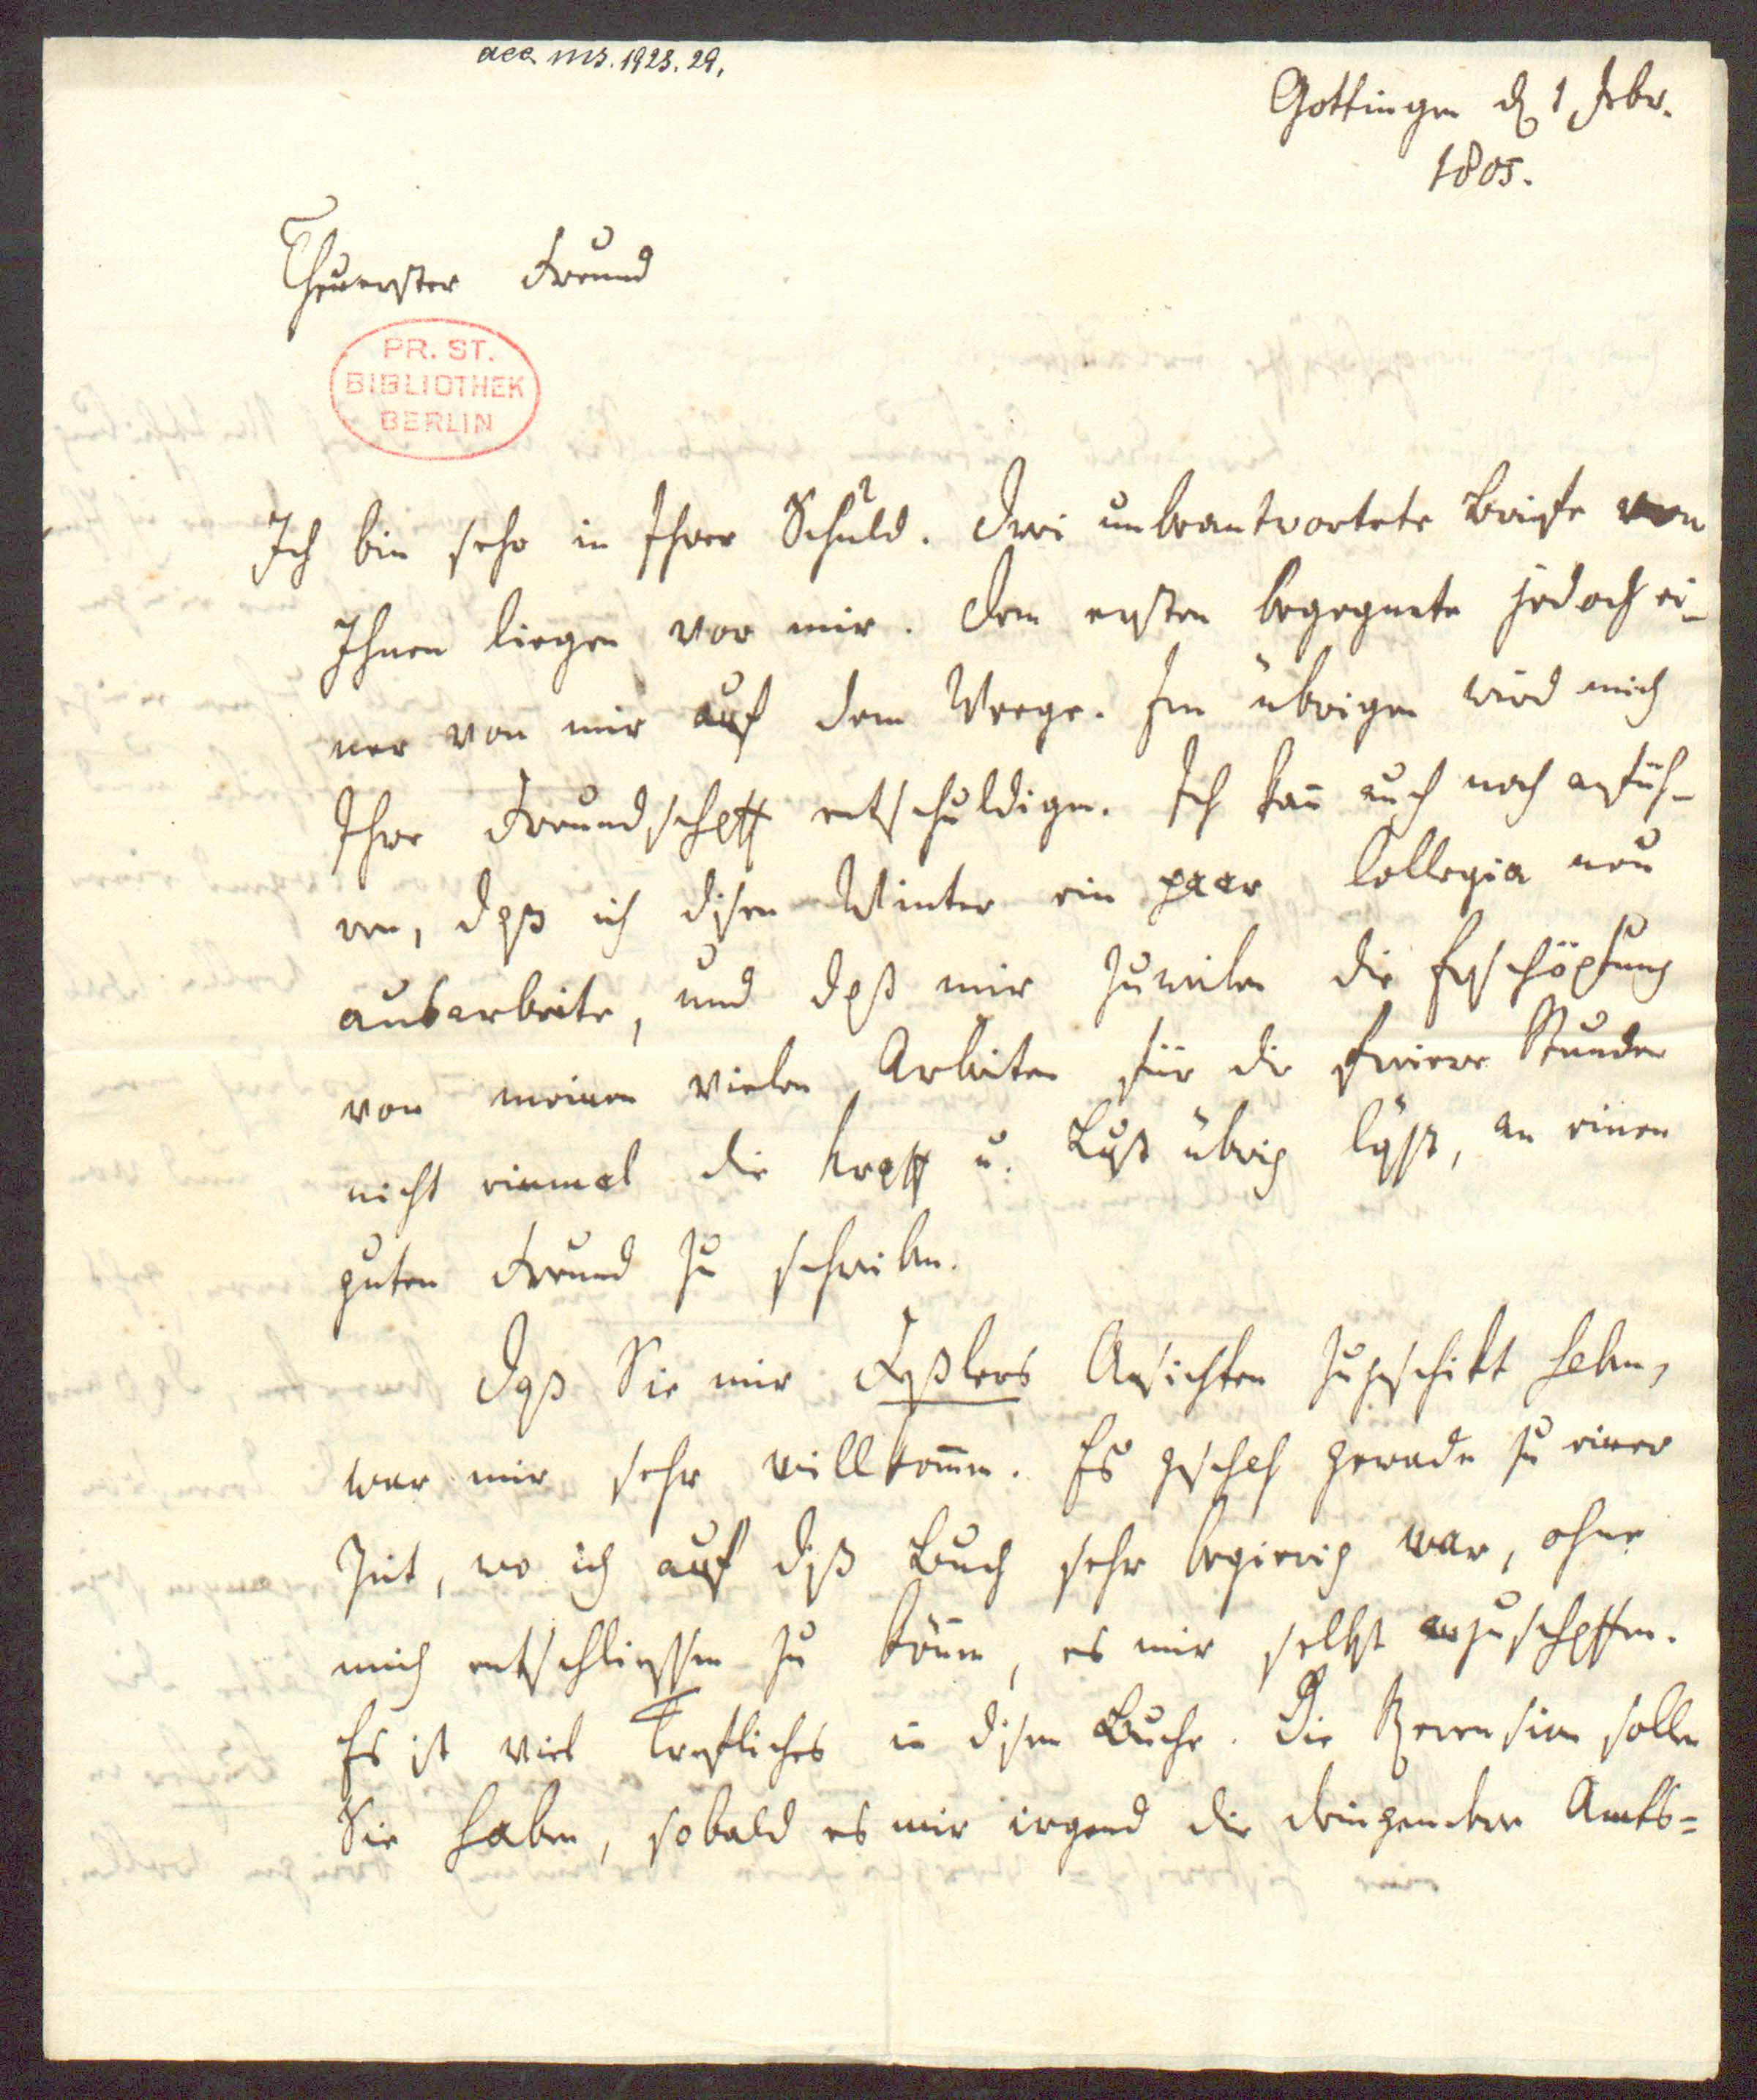 acc. ms. 1923. 29.
Gottingen d 1 Febr.
1805.
Theuerster Freund
PR. ST.
BIBLIOTHEK
BERLIN
Ich bin sehr in Ihrer Schuld. Drei unbeantwortete Briefe von
Ihnen liegen vor mir. Dem ersten begegnete jedoch ei-
ner von mir auf dem Weege. Im übrigen wird mich
Ihre Freundschaft entschuldigen. Ich kan̄ auch noch anfüh-
ren, daß ich disen Winter ein paar Collegia neu
ausarbeite, und daß mir zuweilen die Erschöpfung
von meinen vielen Arbeiten für die freiere Stunden
nicht einmal die Kraft u. Lust übrig läßt, an einen
guten Freund zu schreiben.
Daß Sie mir Feßlers Ansichten zugeschikt haben,
war mir sehr willkom̄en. Es geschah gerade zu einer
Zeit, wo ich auf diß Buch sehr begierig war, ohne
mich entschliessen zu kön̄en, es mir selbst anzuschaffen.
Es ist viel Trefliches in disem Buche. Die Recension sollen
Sie haben, sobald es mir irgend die dringendere Amts=